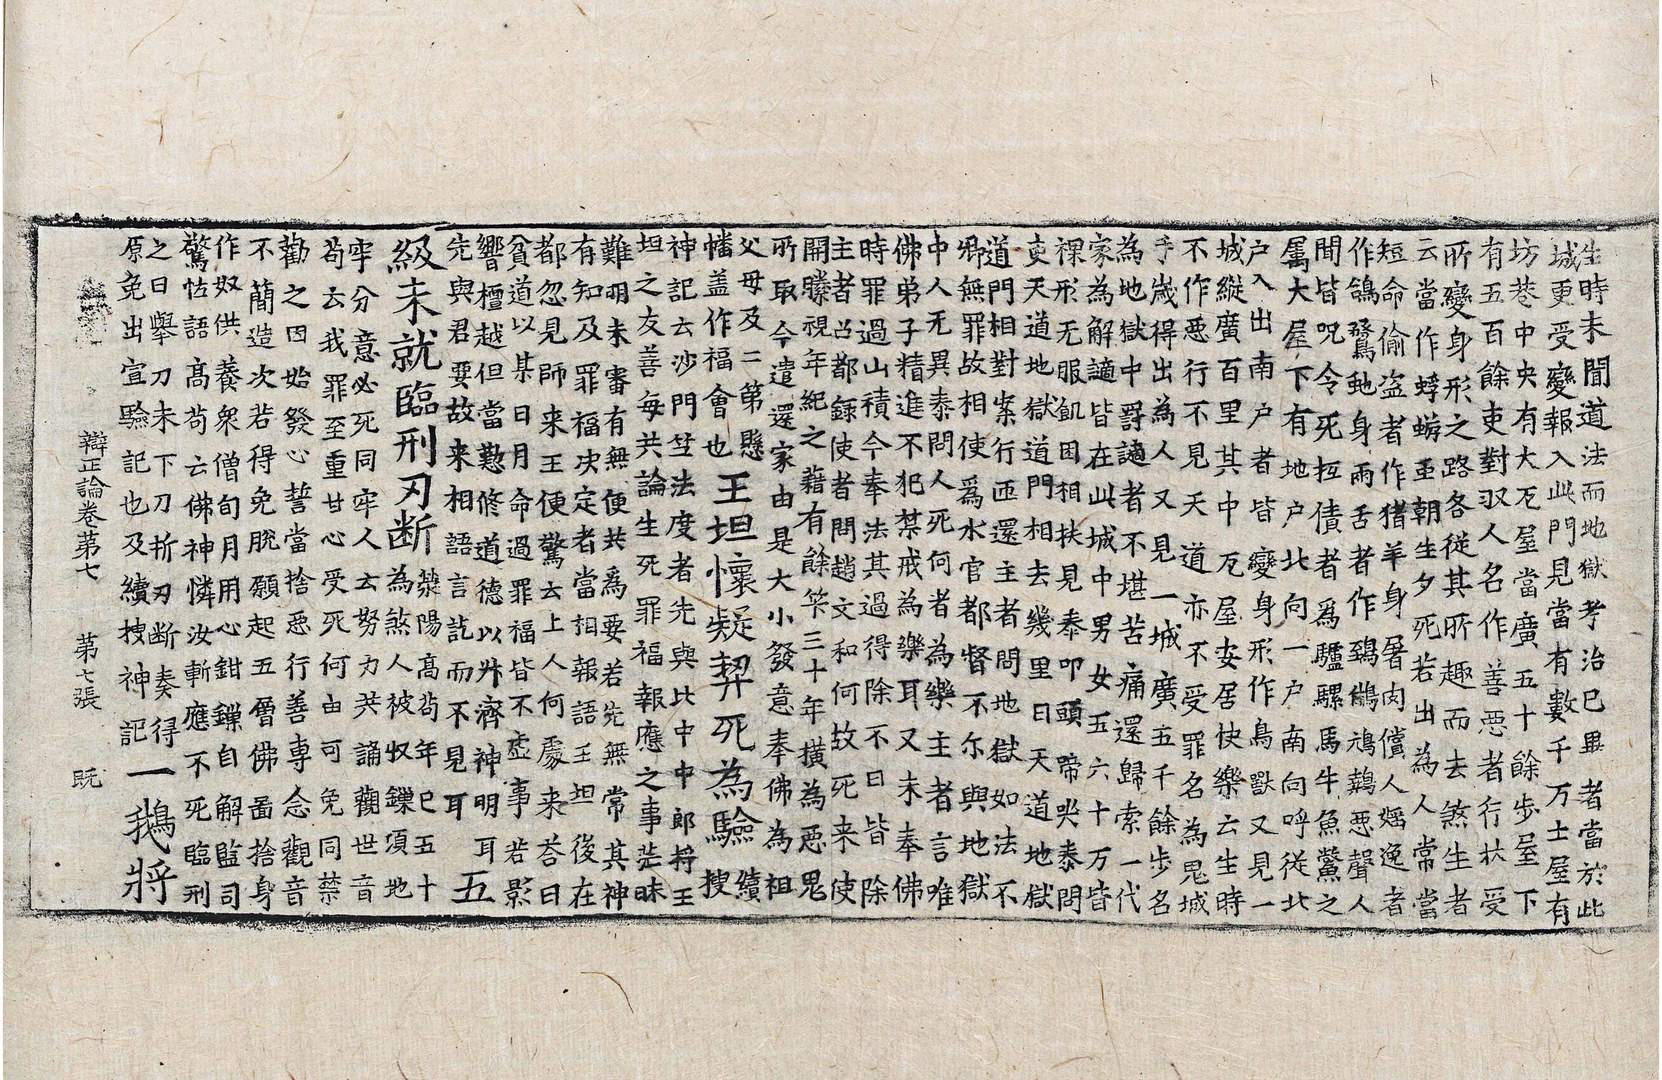 生時未聞道法而地獄考治已畢者當於此
城更受變報入此門見當有數千万土屋有
坊巷中央有大瓦屋當廣五十餘步屋下
有五百餘吏對𭣣人名作善惡者行狀受
所變身形之路各從其所趣而去煞生者
云當作蜉蝣虽朝生夕死若出為人常當
短命偷盜者作猪羊身屠肉償人婬逸者
作鵠鶩虵身兩舌者作鵄鵂鴆鷯惡聲人
聞皆呪令死抂債者爲驢騾馬牛魚鱉之
屬大屋下有地戶北向一戶南向呼從北
戶入出南戶者皆變身形作鳥獸又見一
城縱廣百里其中瓦屋安居快樂云生時
不作惡行不見天道亦不受罪名為鬼城
千歲得出為人又見一城廣五千餘步名
為地獄中罸讁者不堪苦痛還歸索一代
家為解讁皆在此城中男女五六十万皆
裸形无服飢困相扶見泰叩頭啼哭泰問
吏天道地獄道門相去幾里曰天道地獄
道門相對案行迊還主者問地獄如法不
卿無罪故相使爲水官都督不尒與地獄
中人无異泰問人死何者為樂主者言唯
佛弟子精進不犯禁戒為樂耳又未奉佛
時罪過山積今奉法其過得除不曰皆除
主者召都錄使者問趙文和何故死来使
開縢視年紀之藉有餘筭三十年橫為惡鬼
所取今遣還家由是大小發意奉佛為祖
父母及二弟懸
幡盖作福會也王坦懷疑䎤死為驗續搜
神記云沙門竺法度者先與比中中郎將王
坦之友善每共論生死罪福報應之事茫昧
難明未審有無便共爲要若先無常其神
有知及罪福决定者當相報語王坦後在
都忽見師来王便驚云上人何處来荅曰
貧道以某日月命過罪福皆不虛事若影
響檀越但當懃修道德以升濟神明耳
先與君要故来相語言訖而不見耳五
級未就臨刑刃断滎陽高苟年已五十
為煞人被収鏁項地
牢分意必死同牢人云努力共誦觀世音
苟云我罪至重甘心受死何由可免同禁
勸之因始發心誓當捨惡行善專念觀音
不簡造次若得免脫願起五層佛啚捨身
作奴供養衆僧旬月用心鉗鏁自解監司
驚恠語高苟云佛神憐汝斬應不死臨刑
之日舉刀未下刀折刃断奏得
原免出宣驗記也及續搜神記一鵝將
辯正論卷第七 第七張 旣